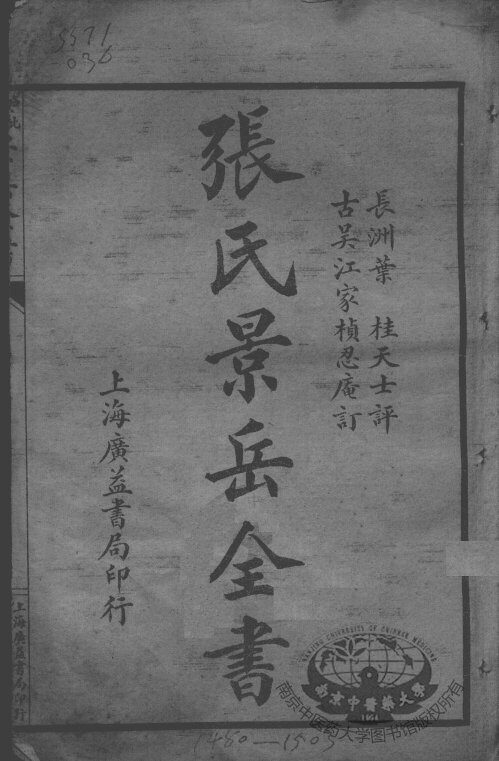 5571
036
長洲葉 桂天士評
古吴江家楨忍庵訂
張氏景岳全書
上海廣益書局印行
上海廣益書局印行
NANJING UNIVERSITY OF CHINESE MEDICINE
南京中醫藥大學
1954
南京中医药大学图书馆版权所有
1480—1503